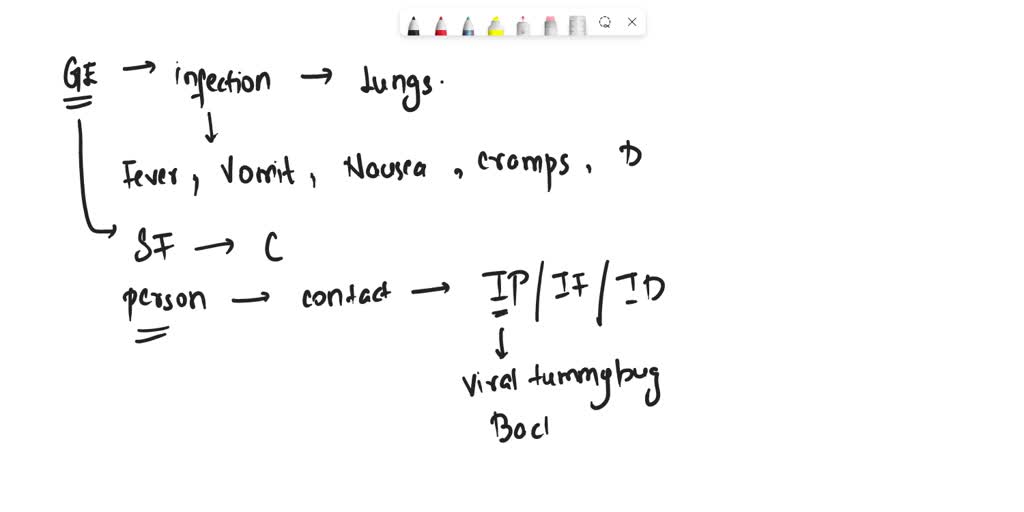 GE → infection → Lungs.
↓
Fever, Vomit, Nausea, cramps, D
SF → C
person → contact → IP/IF/ID
↓
Viral tummybug
Bacl